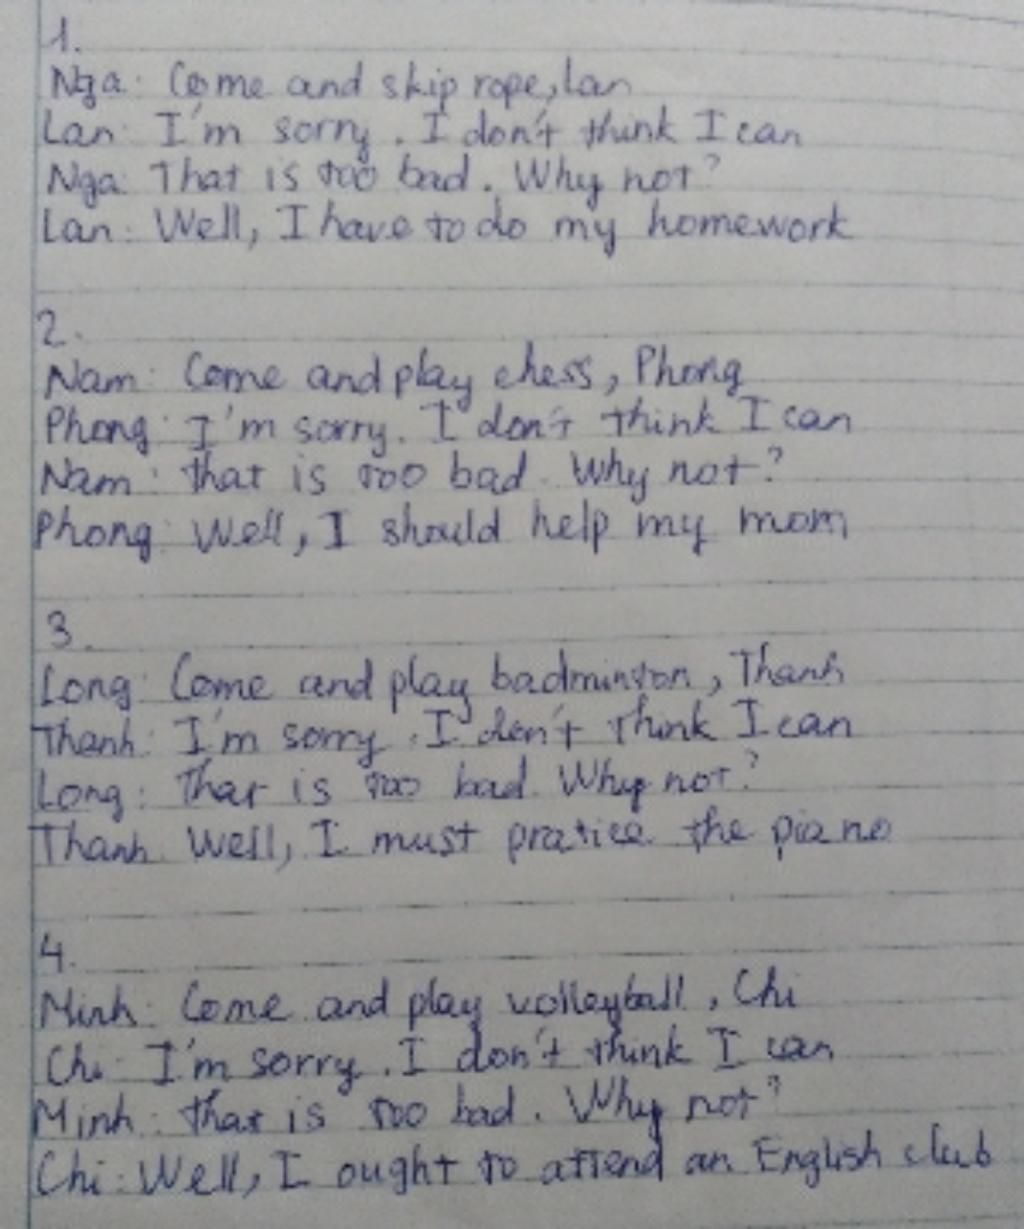 1.
Nga: Come and skip rope, Lan
Lan: I'm sorry. I don't think I can
Nga: That is too bad. Why not?
Lan: Well, I have to do my homework
2.
Nam: Come and play chess, Phong
Phong: I'm sorry. I don't think I can
Nam: that is too bad. Why not?
Phong: Well, I should help my mom
3.
Long: Come and play badminton, Thanh
Thanh: I'm sorry. I don't think I can
Long: That is too bad. Why not?
Thanh: Well, I must pratice the piano
4.
Minh: Come and play volleyball, Chi
Chi: I'm sorry. I don't think I can
Minh: that is too bad. Why not?
Chi: Well, I ought to attend an English club